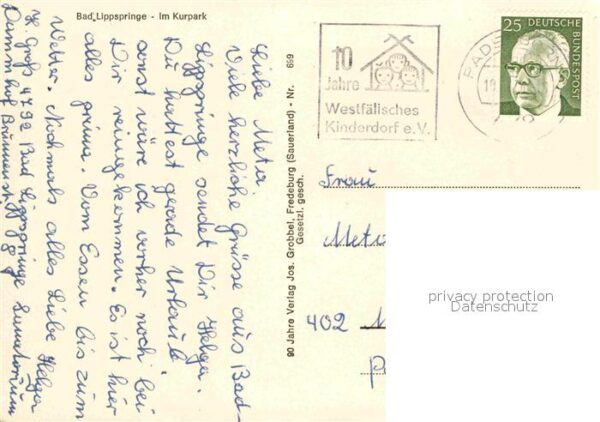 Bad Lippspringe - Im Kurpark
Liebe Meta
Viele herzliche Grüsse aus Bad-
Lippspringe sendet Dir Helga.
Du hattest gerade Urlaub
sonst wäre ich vorher noch bei
Dir reingekommen. Es ist hier
alles prima. Vom Essen bis zum
Wetter. Nochmals alles Liebe Helga
H. Groß 4792 Bad Lippspringe Sanatorium
90 Jahre Verlag Jos. Grobbel, Fredeburg (Sauerland) - Nr. 699
Gesetzl. gesch.
10
Jahre
Westfälisches
Kinderdorf e.V.
PADERBORN
25 DEUTSCHE
BUNDESPOST
Frau
Meta
402
privacy protection
Datenschutz